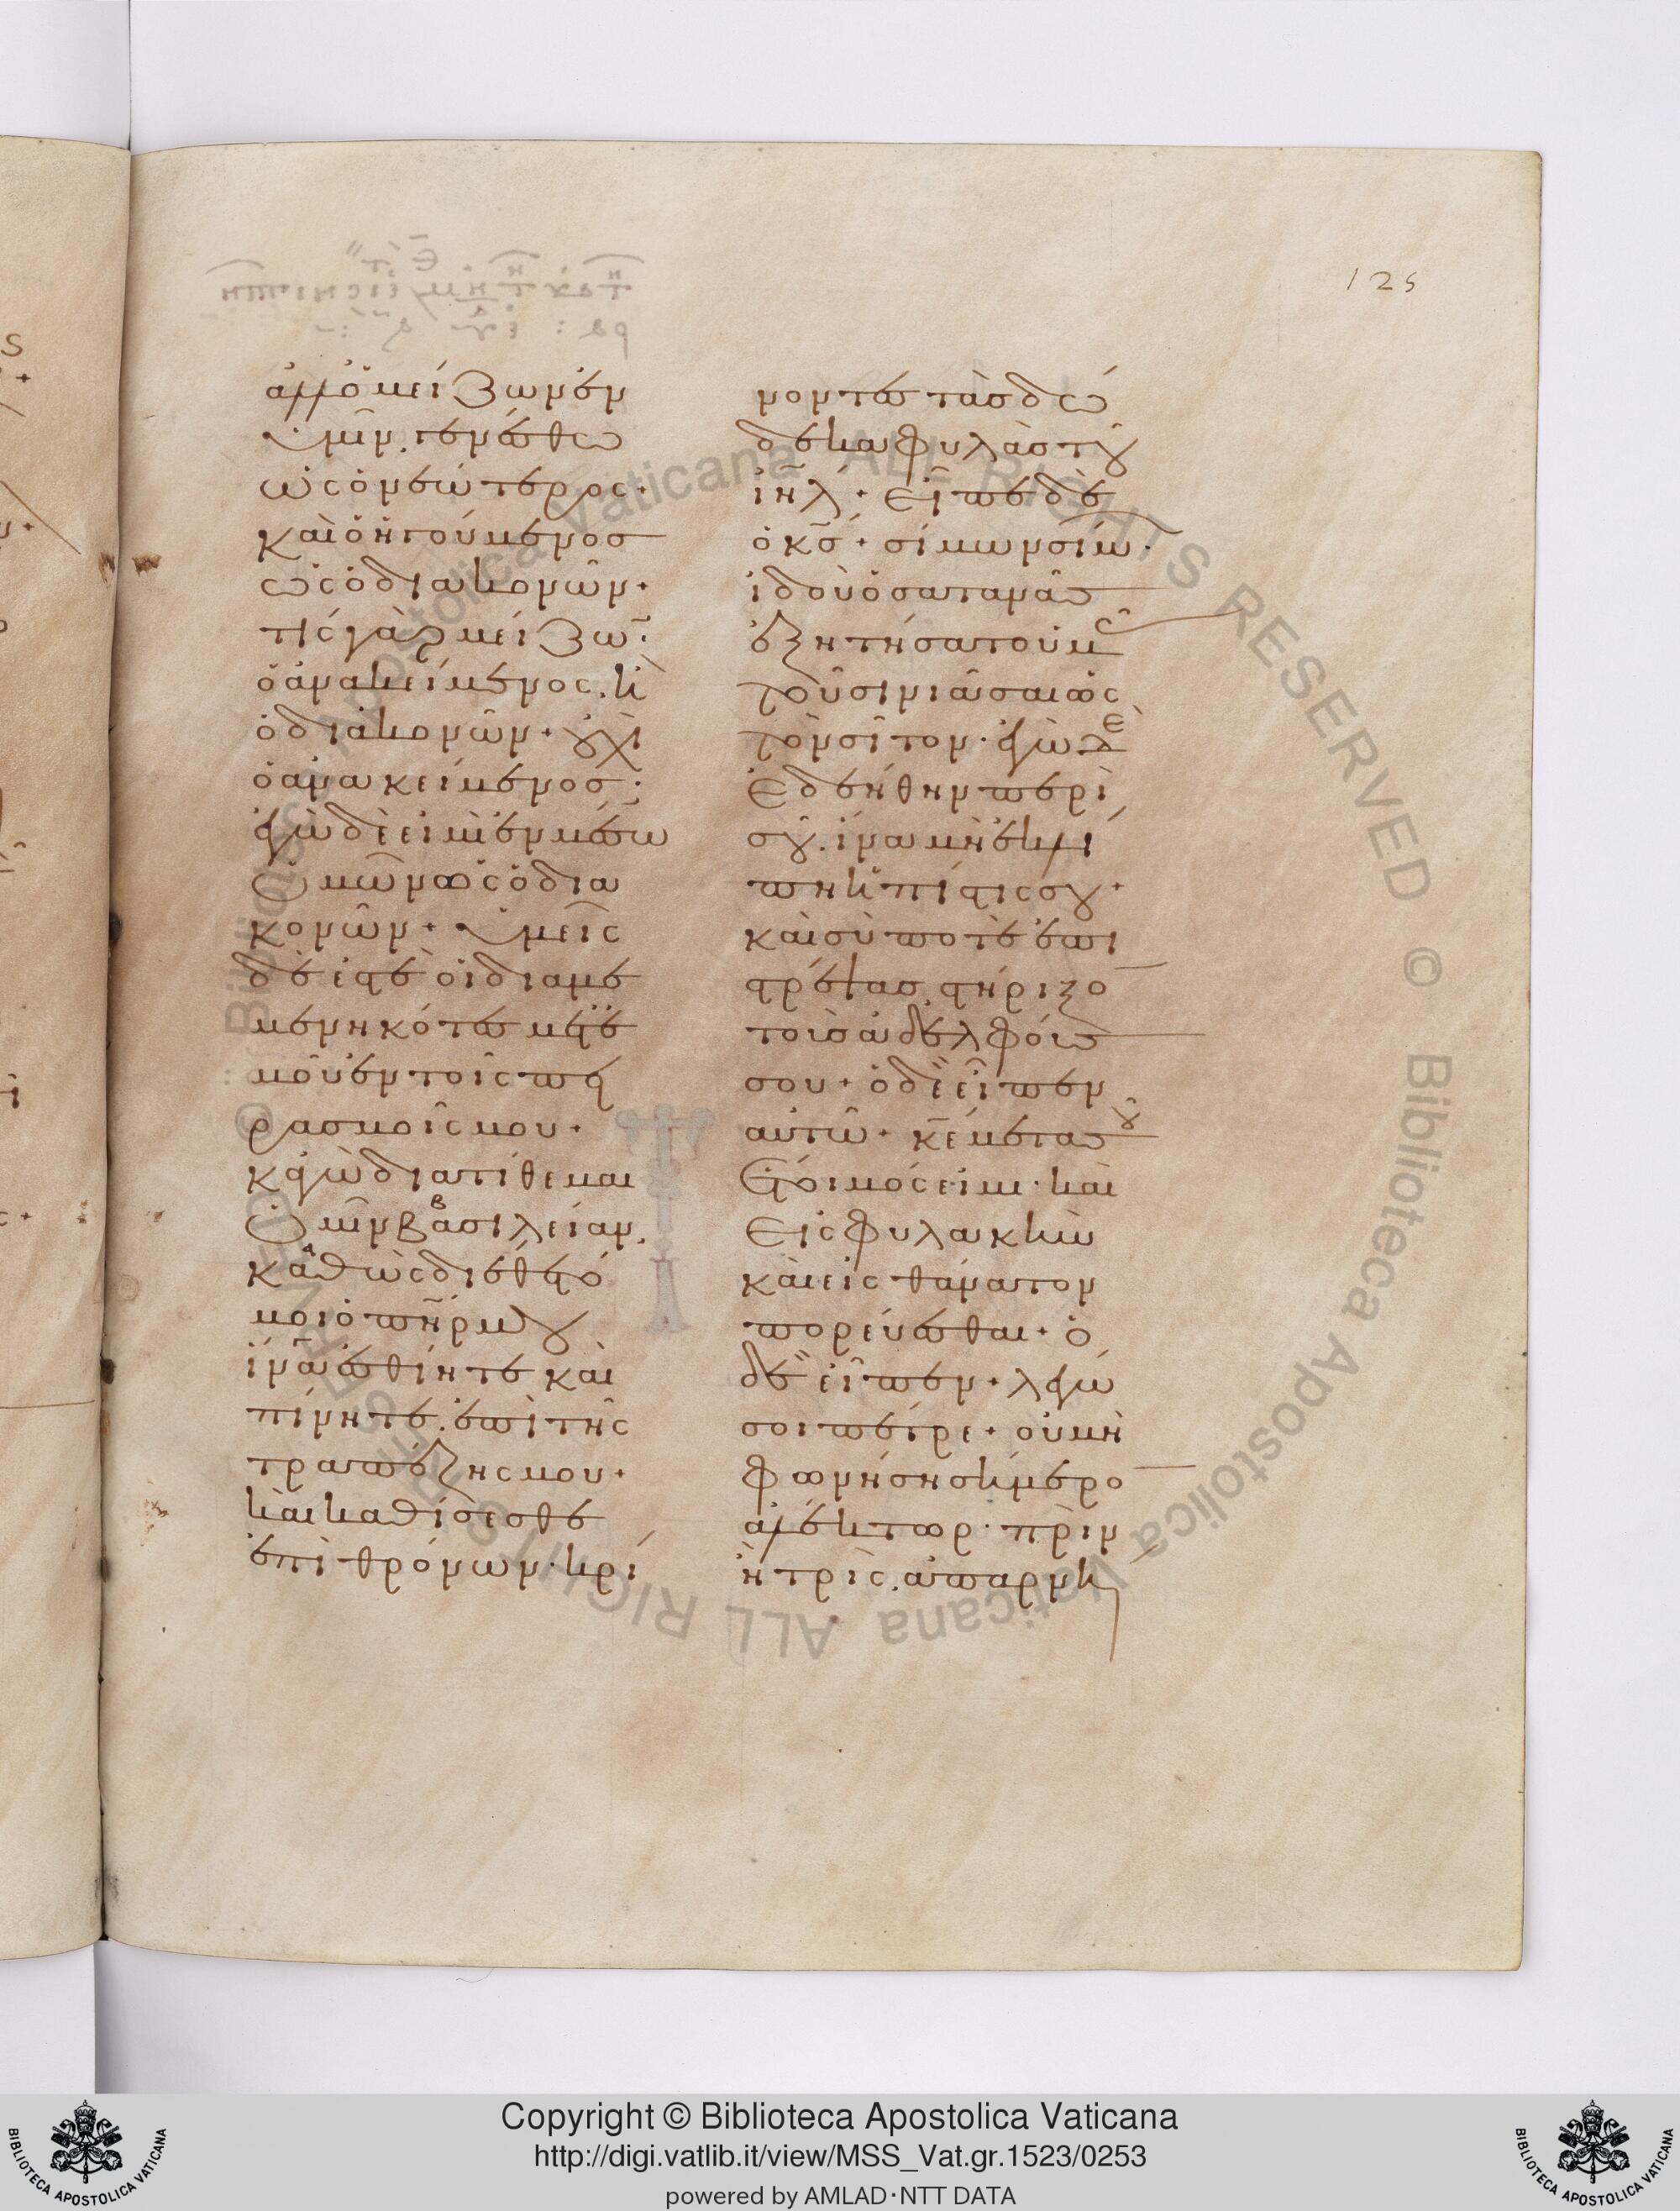 125
ἀλλ ὁ μείζων ἐν
ὑμῖν. γενέσθω
ὡς ὁ νεώτερος.
καὶ ὁ ἡγούμενοσ
ὡς ὁ διακονῶν.
τίς γὰρ μείζω̃.
ὁ ἀνακείμενος. κ̀
ὁ διακονῶν. οὐχὶ
ὁ ἀνακείμενοσ.
ἐγὼ δὲ εἰμὶ ἐν μέσω
ὑμῶν ὡς ὁ δια
κονῶν. ὑμεῖς
δέ ἐστὲ οἱ διαμε
μενηκότες μετ ἐ
μοῦ ἐν τοῖς πει
ρασμοῖς μου.
κἀγὼ διατίθεμαι
ὑμῖν βασιλείαν.
καθὼς διέθετό
μοι ὁ πη̃ρ μου
ἵνα ἐσθίητε καὶ
πίνητε. ἐπὶ τῆς
τραπέζης μου.
καὶ καθίσεσθε
ἐπὶ θρόνων. κρί
νοντες τὰσ δώ
δεκα φυλὰσ τοῦ
ιη̃λ. εἶπε δὲ
ὁ κσ̃. σίμων σίμω.
ἰδοὺ ὁ σατανᾶσ
ἐξητήσατο ὑμᾶς
τοῦ σινιᾶσαι ὡς
τὸν σῖτον. ἐγὼ δὲ
ἐδεήθην περὶ
σοῦ. ἵνα μὴ ἐκλεί
πη ἡ πίστις σου.
καὶ σύ ποτε ἐπι
στρέψασ. στήριξο
τοὺσ ἀδελφούσ
σου. ὁ δὲ εἶπεν
αὐτῶ. κε̃ μετὰ σοῦ
ἕτοιμός εἰμι. καὶ
εἰς φυλακὴν
καὶ εἰς θάνατον
πορεύεσθαι. ὁ
δὲ εἶπεν. λέγω
σοι πέτρε. οὐ μὴ
φωνήση σήμερο
ἀλέκτωρ. πρὶν
ἢ τρὶς. ἀπαρνή
Copyright © Biblioteca Apostolica Vaticana
http://digi.vatlib.it/view/MSS_Vat.gr.1523/0253
powered by AMLAD·NTT DATA
BIBLIOTECA APOSTOLICA VATICANA
BIBLIOTECA APOSTOLICA VATICANA